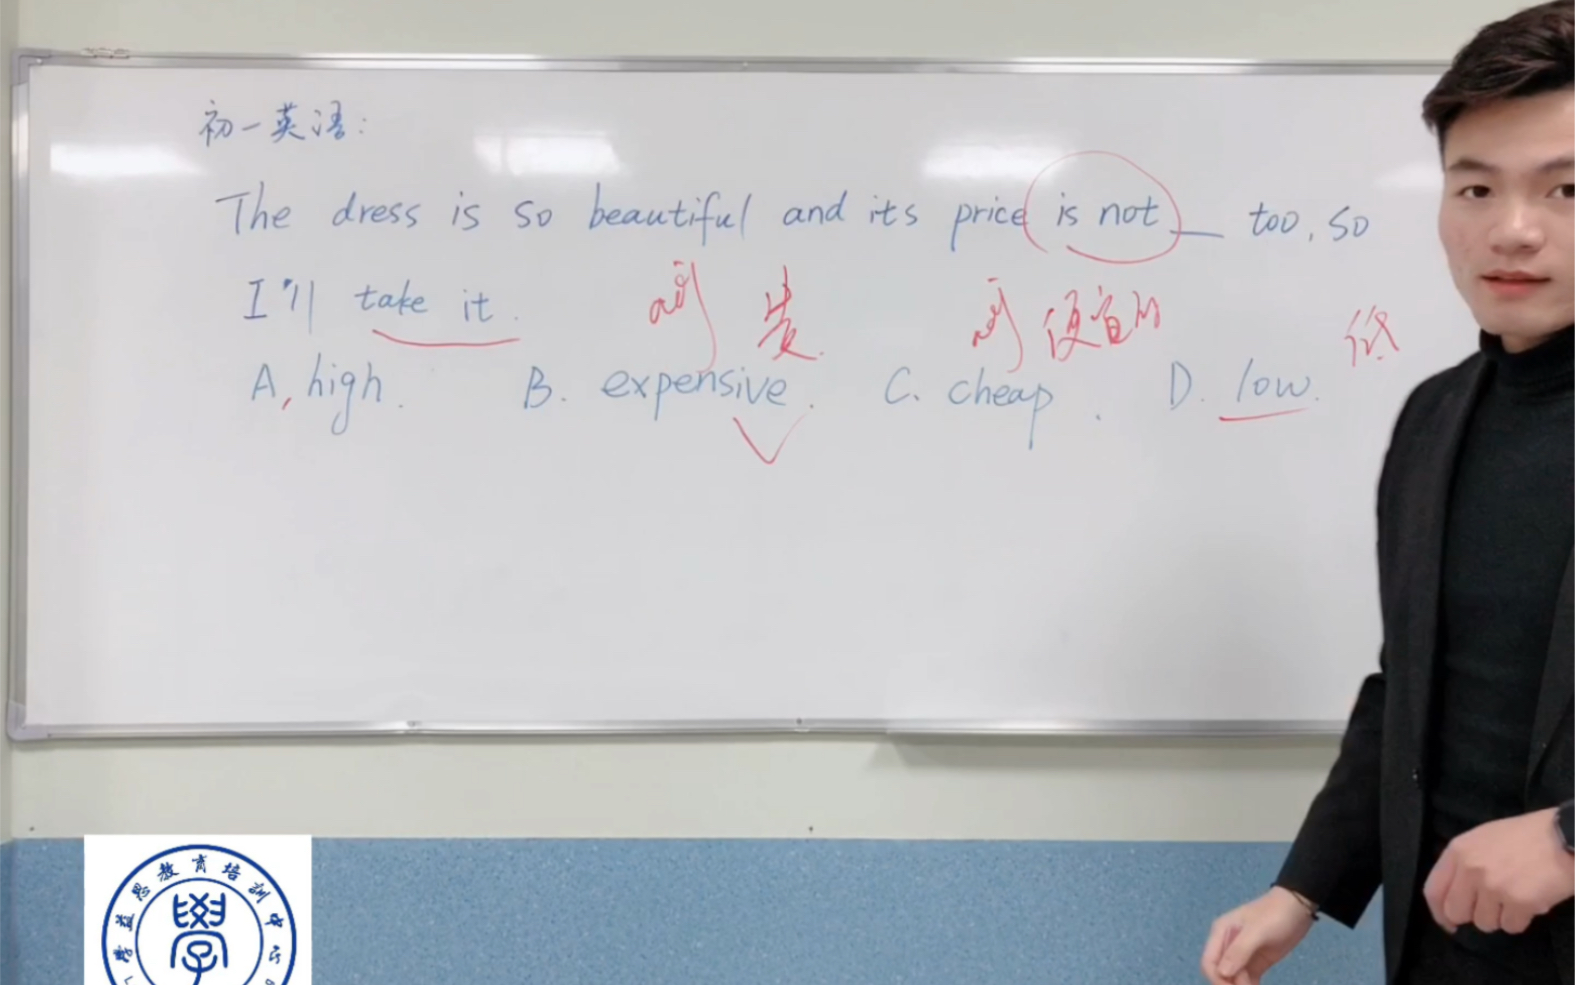 初一英语:
The dress is so beautiful and its price is not __ too, so
I'll take it.
adj 贵 adj 便宜的 低
A, high. B. expensive. C. cheap. D. low.
益思教育培训中心
學